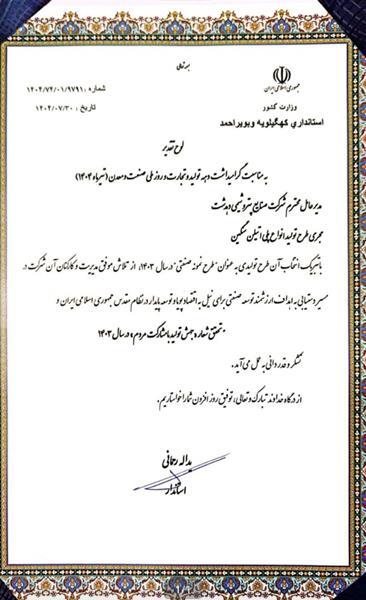 بسمه تعالی
جمهوری اسلامی ایران
وزارت کشور
استانداری کهگیلویه وبویراحمد
شماره : ۱۴۰۴/۷۴/۰۱/۹۷۹۱
تاریخ : ۱۴۰۴/۰۷/۳۰
لوح تقدیر
به مناسبت گرامیداشت دهه تولید و تجارت و روز ملی صنعت و معدن (تیرماه ۱۴۰۴)
مدیرعامل محترم شرکت صنایع پتروشیمی دهدشت
مجری طرح تولید انواع پلی اتیلن سنگین
با تبریک انتخاب آن طرح تولیدی به عنوان "طرح نمونه صنعتی" در سال ۱۴۰۳، از تلاش موفق مدیریت و کارکنان آن شرکت در
مسیر دستیابی به اهداف ارزشمند توسعه صنعتی برای نیل به اقتصاد پویا و توسعه پایدار در نظام مقدس جمهوری اسلامی ایران و
تحقق شعار «جهش تولید با مشارکت مردم» در سال ۱۴۰۳
تشکر و قدردانی به عمل می‌آید.
از درگاه خداوند تبارک و تعالی، توفیق روز افزون شما را خواستاریم.
یداله رحمانی
استاندار